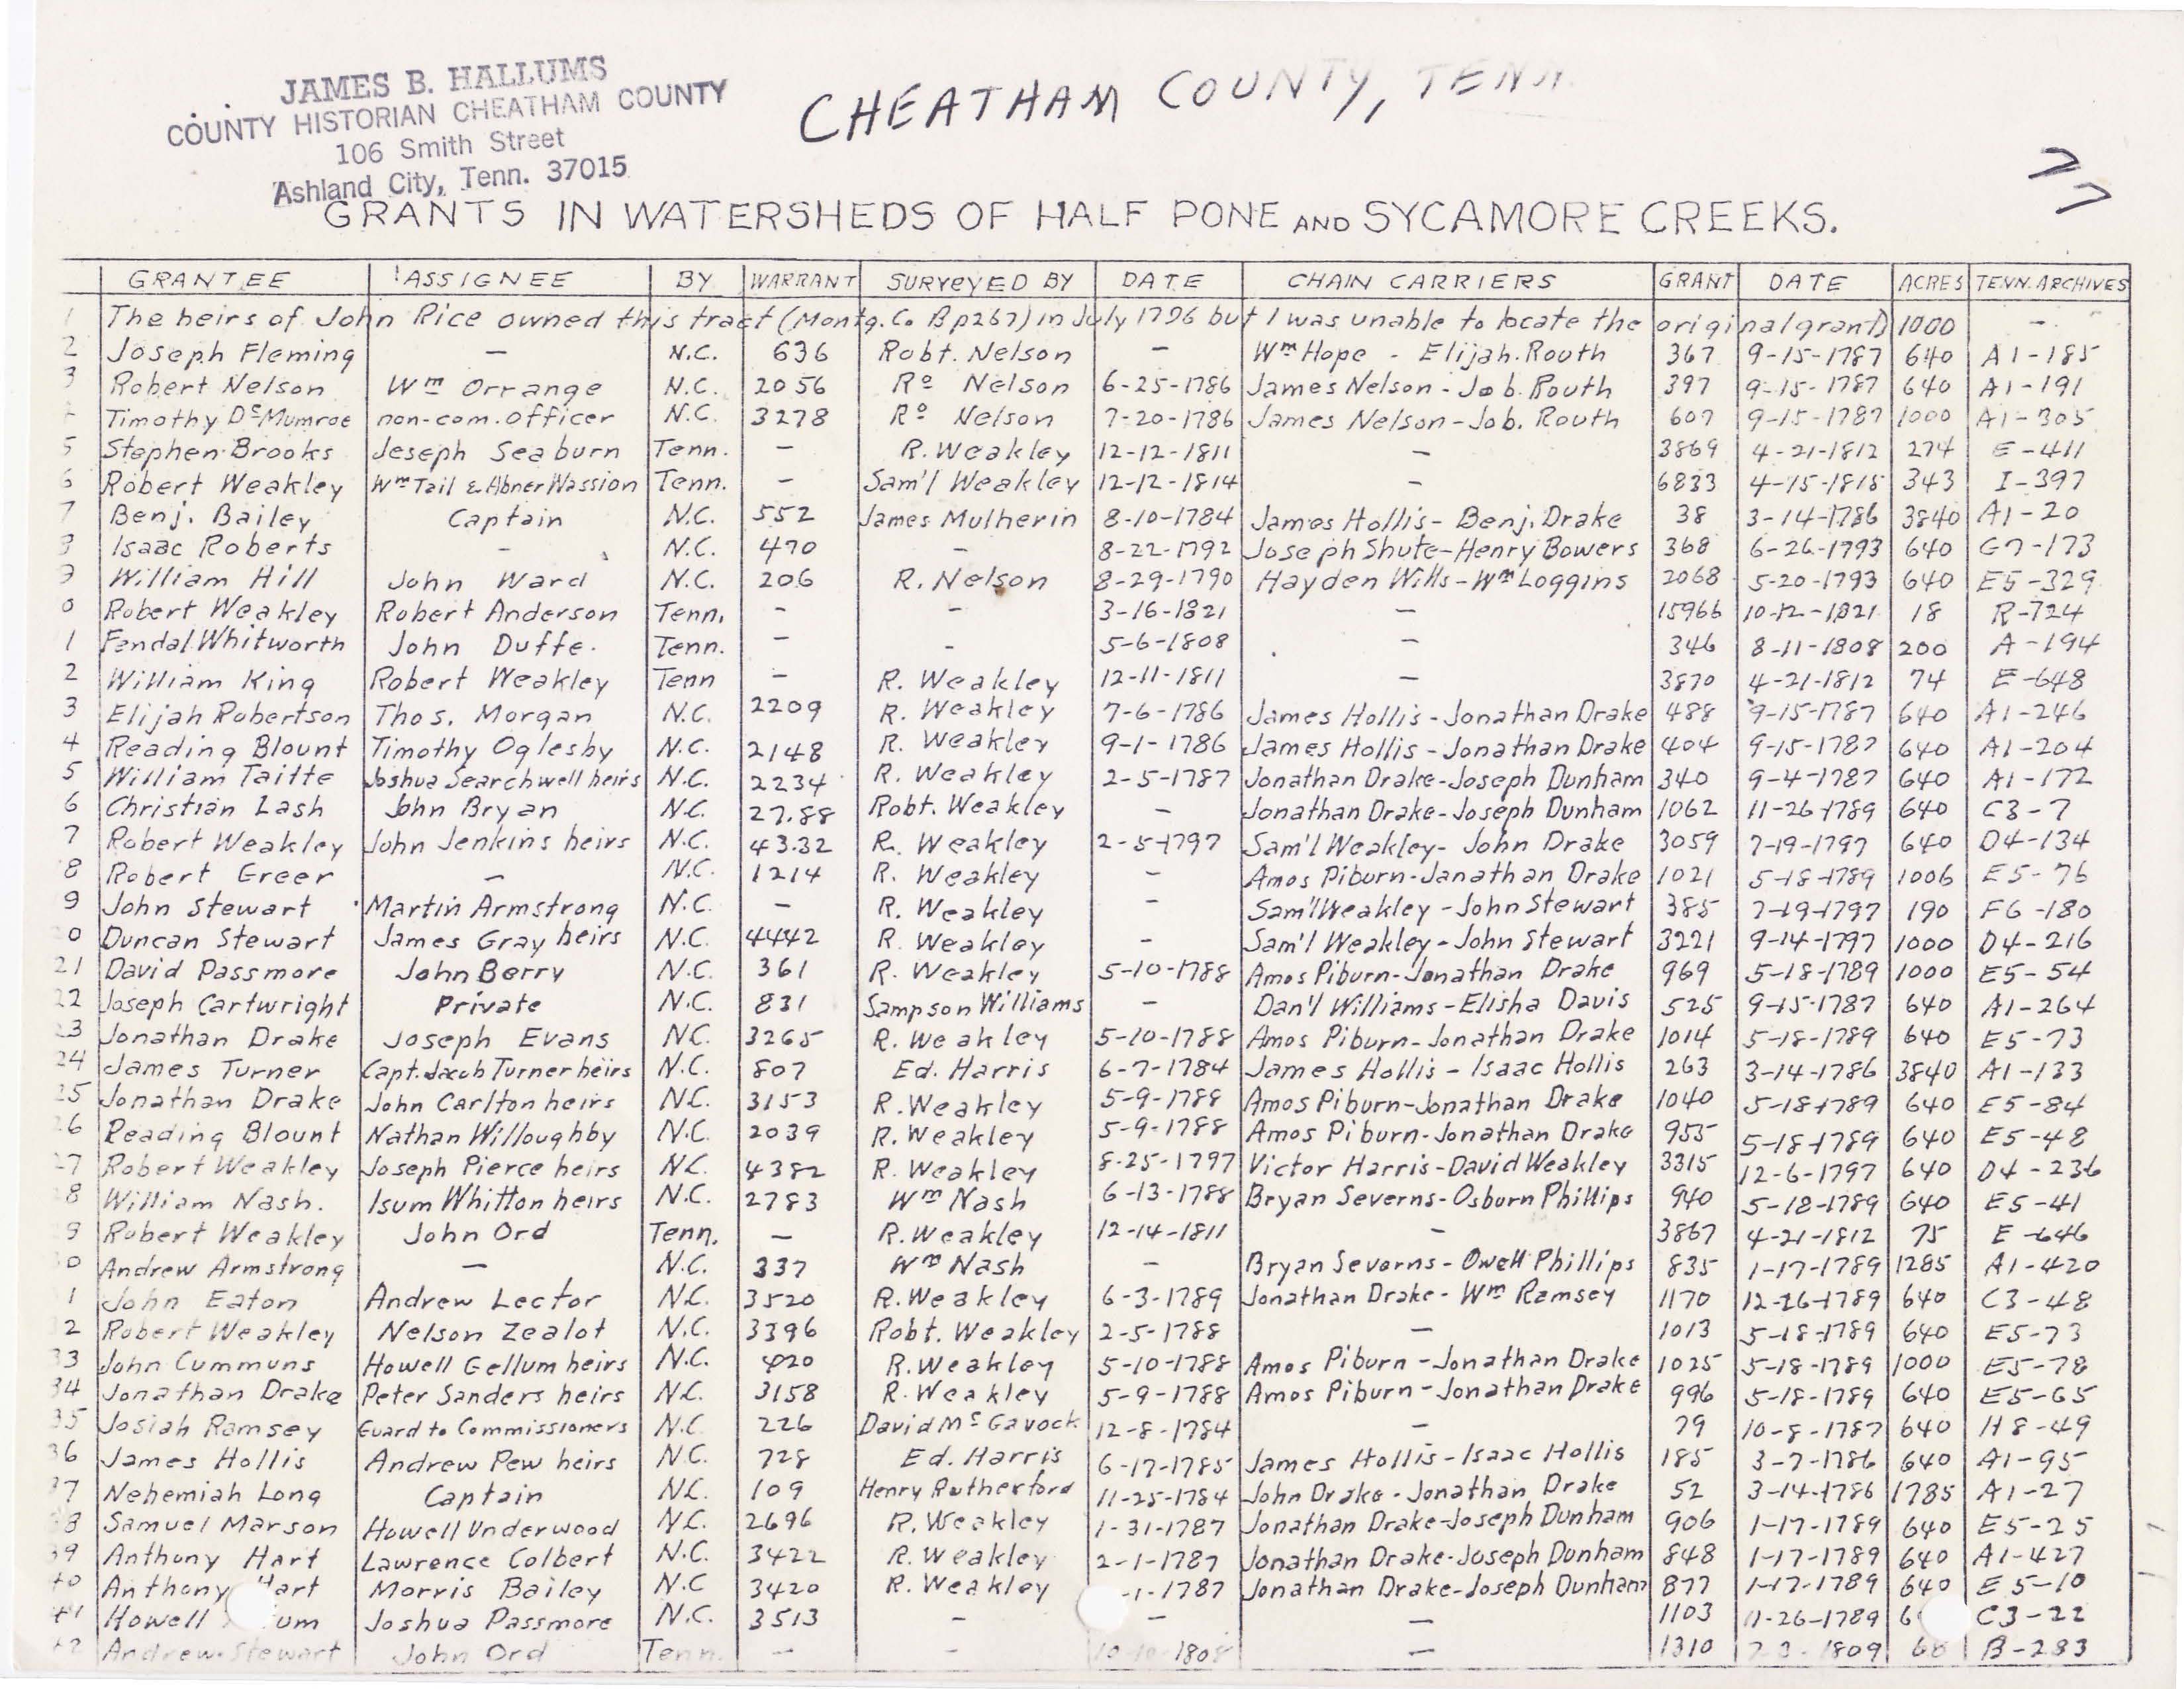 JAMES B. HALLUMS
COUNTY HISTORIAN CHEATHAM COUNTY
106 Smith Street
Ashland City, Tenn. 37015
CHEATHAM COUNTY, TENN.
77
GRANTS IN WATERSHEDS OF HALF PONE AND SYCAMORE CREEKS.
GRANTEE ASSIGNEE BY WARRANT SURVEYED BY DATE CHAIN CARRIERS GRANT DATE ACRES TENN. ARCHIVES
1 The heirs of John Rice owned this tract (Montg. Co B p267) in July 1796 but I was unable to locate the original grant) 1000 -
2 Joseph Fleming - N.C. 636 Robt. Nelson - Wm Hope - Elijah Routh 367 9-15-1787 640 A1-185
3 Robert Nelson Wm Orrange N.C. 2056 Ro Nelson 6-25-1786 James Nelson - Job. Routh 397 9-15-1787 640 A1-191
Timothy Dc Mumroe non-com. officer N.C. 3278 Ro Nelson 7-20-1786 James Nelson - Job. Routh 607 9-15-1787 1000 A1-305
5 Stephen Brooks Jeseph Seaburn Tenn. - R. Weakley 12-12-1811 - 3869 4-21-1812 274 E-411
6 Robert Weakley Wm Tail & Abner Wassion Tenn. - Sam'l Weakley 12-12-1814 - 6833 4-15-1815 343 I-397
7 Benj. Bailey Captain N.C. 552 James Mulherin 8-10-1784 James Hollis - Benj. Drake 38 3-14-1786 3840 A1-20
8 Isaac Roberts - N.C. 470 - 8-22-1792 Joseph Shute-Henry Bowers 368 6-26-1793 640 G7-173
9 William Hill John Ward N.C. 206 R. Nelson 8-29-1790 Hayden Wills - Wm Loggins 2068 5-20-1793 640 E5-329
0 Robert Weakley Robert Anderson Tenn. - - 3-16-1821 - 15966 10-12-1821 18 R-724
1 Fendal Whitworth John Duffe. Tenn. - - 5-6-1808 - 346 8-11-1808 200 A-194
2 William King Robert Weakley Tenn - R. Weakley 12-11-1811 - 3870 4-21-1812 74 E-648
3 Elijah Robertson Thos. Morgan N.C. 2209 R. Weakley 7-6-1786 James Hollis - Jonathan Drake 488 9-15-1787 640 A1-246
4 Reading Blount Timothy Oglesby N.C. 2148 R. Weakley 9-1-1786 James Hollis - Jonathan Drake 404 9-15-1787 640 A1-204
5 William Taitte Joshua Searchwell heirs N.C. 2234 R. Weakley 2-5-1787 Jonathan Drake-Joseph Dunham 340 9-4-1787 640 A1-172
6 Christian Lash John Bryan N.C. 27.88 Robt. Weakley - Jonathan Drake-Joseph Dunham 1062 11-26-1789 640 C3-7
7 Robert Weakley John Jenkins heirs N.C. 43.32 R. Weakley 2-5-1797 Sam'l Weakley- John Drake 3059 7-19-1797 640 D4-134
8 Robert Greer - N.C. 1214 R. Weakley - Amos Piburn-Janathan Drake 1021 5-18-1789 1006 E5-76
9 John Stewart Martin Armstrong N.C. - R. Weakley - Sam'l Weakley - John Stewart 385 7-19-1797 190 F6-180
0 Duncan Stewart James Gray heirs N.C. 4442 R. Weakley - Sam'l Weakley - John Stewart 3221 9-14-1797 1000 D4-216
21 David Passmore John Berry N.C. 361 R. Weakley 5-10-1788 Amos Piburn-Jonathan Drake 969 5-18-1789 1000 E5-54
22 Joseph Cartwright Private N.C. 831 Sampson Williams - Dan'l Williams - Elisha Davis 525 9-15-1787 640 A1-264
23 Jonathan Drake Joseph Evans N.C. 3265 R. Weakley 5-10-1788 Amos Piburn-Jonathan Drake 1014 5-18-1789 640 E5-73
24 James Turner Capt. Jacob Turner heirs N.C. 807 Ed. Harris 6-7-1784 James Hollis - Isaac Hollis 263 3-14-1786 3840 A1-133
25 Jonathan Drake John Carlton heirs N.C. 3153 R. Weakley 5-9-1788 Amos Piburn-Jonathan Drake 1040 5-18-1789 640 E5-84
26 Reading Blount Nathan Willoughby N.C. 2039 R. Weakley 5-9-1788 Amos Piburn-Jonathan Drake 955 5-18-1789 640 E5-48
27 Robert Weakley Joseph Pierce heirs N.C. 4382 R. Weakley 8-25-1797 Victor Harris-David Weakley 3315 12-6-1797 640 D4-236
8 William Nash. Isum Whitton heirs N.C. 2783 Wm Nash 6-13-1788 Bryan Severns-Osburn Phillips 940 5-18-1789 640 E5-41
9 Robert Weakley John Ord Tenn. - R. Weakley 12-14-1811 - 3867 4-21-1812 75 E-646
30 Andrew Armstrong - N.C. 337 Wm Nash - Bryan Severns - Owell Phillips 835 1-17-1789 1285 A1-420
1 John Eaton Andrew Lector N.C. 3520 R. Weakley 6-3-1789 Jonathan Drake - Wm Ramsey 1170 12-26-1789 640 C3-48
2 Robert Weakley Nelson Zealot N.C. 3396 Robt. Weakley 2-5-1788 - 1013 5-18-1789 640 E5-73
33 John Cummuns Howell Gellum heirs N.C. 420 R. Weakley 5-10-1788 Amos Piburn - Jonathan Drake 1025 5-18-1789 1000 E5-78
34 Jonathan Drake Peter Sanders heirs N.C. 3158 R. Weakley 5-9-1788 Amos Piburn - Jonathan Drake 996 5-18-1789 640 E5-65
35 Josiah Ramsey Guard to Commissioners N.C. 226 David Mc Gavock 12-8-1784 - 79 10-8-1787 640 H8-49
36 James Hollis Andrew Pew heirs N.C. 728 Ed. Harris 6-17-1785 James Hollis - Isaac Hollis 185 3-7-1786 640 A1-95
37 Nehemiah Long Captain N.C. 109 Henry Rutherford 11-25-1784 John Drake - Jonathan Drake 52 3-14-1786 1785 A1-27
38 Samuel Marson Howell Underwood N.C. 2696 R. Weakley 1-31-1787 Jonathan Drake-Joseph Dunham 906 1-17-1789 640 E5-25
39 Anthony Hart Lawrence Colbert N.C. 3422 R. Weakley 2-1-1787 Jonathan Drake-Joseph Dunham 848 1-17-1789 640 A1-427
40 Anthony Hart Morris Bailey N.C 3420 R. Weakley -1-1787 Jonathan Drake-Joseph Dunham 877 1-17-1789 640 E5-10
41 Howell Joshua Passmore N.C. 3513 - - - 1103 11-26-1789 C3-22
42 Andrew Stewart John Ord Tenn. - - - 1310 1809 60 B-283